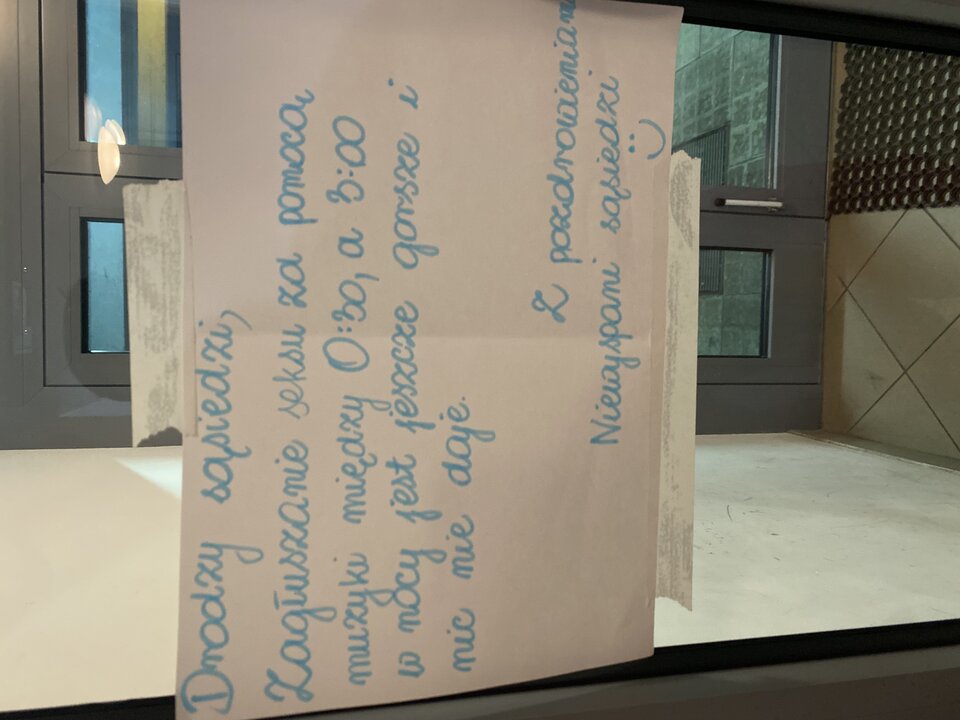 Drodzy sąsiedzi,
Zagłuszanie seksu za pomocą
muzyki między 0:30, a 3:00
w nocy jest jeszcze gorsze i
nic nie daje.
Z pozdrowieniami
Niewyspani sąsiedzi
:)